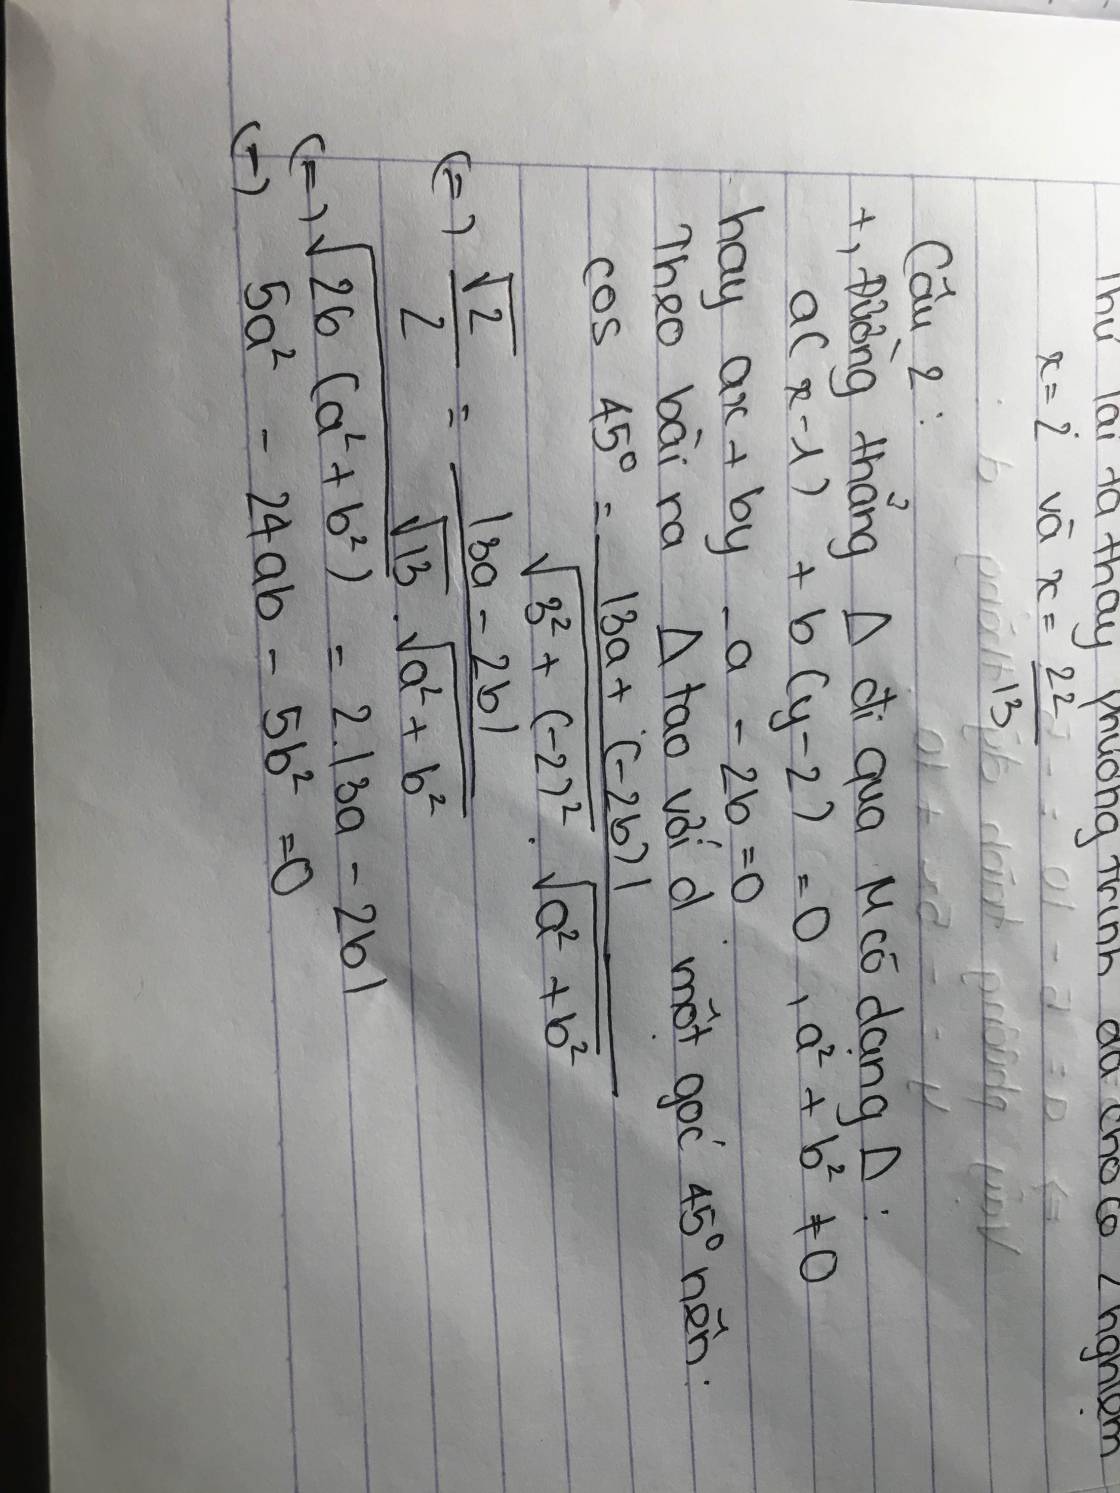 Thử lại ta thay phương trình đã cho có 2 nghiệm
x = 2 và x = 22
13
Câu 2:
+, Đường thẳng Δ đi qua M có dạng Δ:
a(x-1) + b(y-2) = 0, a² + b² ≠ 0
hay ax + by - a - 2b = 0
Theo bài ra Δ tạo với d một góc 45° nên:
cos 45° = |3a + (-2b)|
√3² + (-2)² . √a² + b²
(=) √2/2 = |3a - 2b|
√13 . √a² + b²
(=) √26(a² + b²) = 2.|3a - 2b|
(=) 5a² - 24ab - 5b² = 0